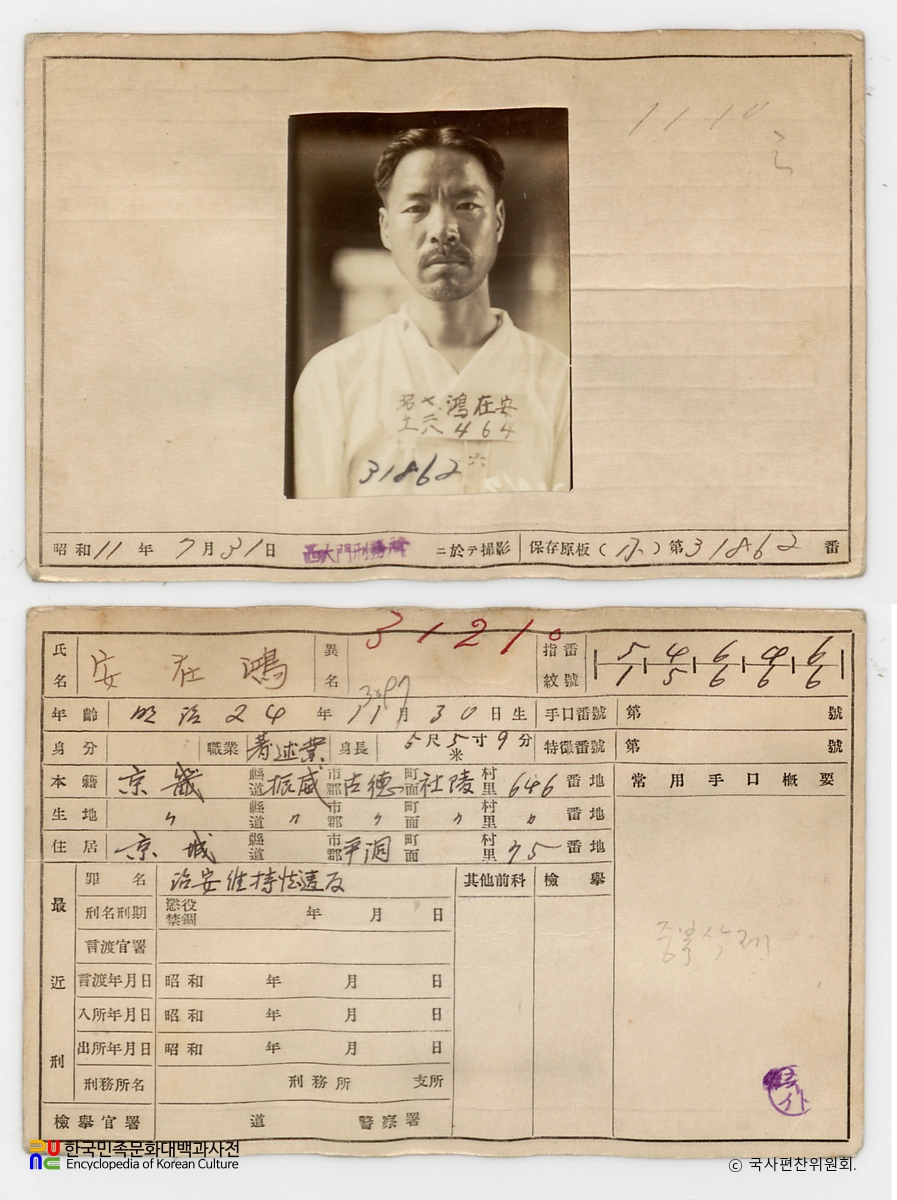 1110
安在鴻
464
31862
昭和11年7月31日 西大門刑務所 ニ於テ撮影 保存原板(小)第31862番
31210
氏名 安在鴻 異名 指紋番號
年齡 明治24年11月30日生 手口番號 第 號
身分 職業 著述業 身長 5尺5寸9分 米 特徵番號 第 號
本籍 京畿 縣道 振威 市郡 古德 町面 杜陵 村里 646 番地 常用手口槪要
生地 〃 縣道 〃 市郡 〃 町面 〃 村里 〃 番地
住居 京城 縣道 市郡 平洞 町面 村里 75 番地
最近刑
罪名 治安維持法違反 其他前科 檢擧
刑名刑期 懲役 禁錮 年 月 日
言渡官署
言渡年月日 昭和 年 月 日
入所年月日 昭和 年 月 日
出所年月日 昭和 年 月 日
刑務所名 刑務所 支所
檢擧官署 道 警察署
한국민족문화대백과사전
Encyclopedia of Korean Culture
© 국사편찬위원회.